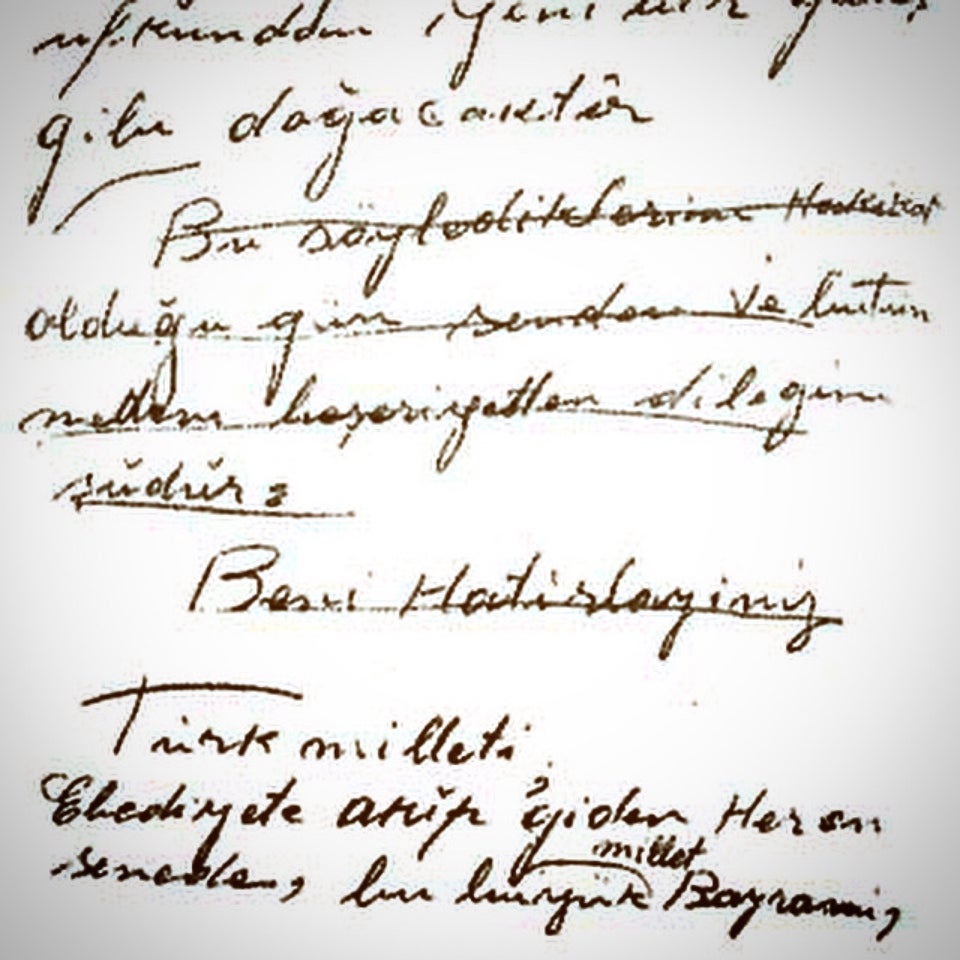 ufkundan yeni bir güneş
gibi doğacaktır
Bu söylediklerim Hakikat
olduğu gün senden ve bütün
medeni beşeriyetten dileğim
şudur:
Beni Hatırlayınız
Türk milleti,
Ebediyete akıp giden Her on
millet
senede, bu büyük Bayramı,